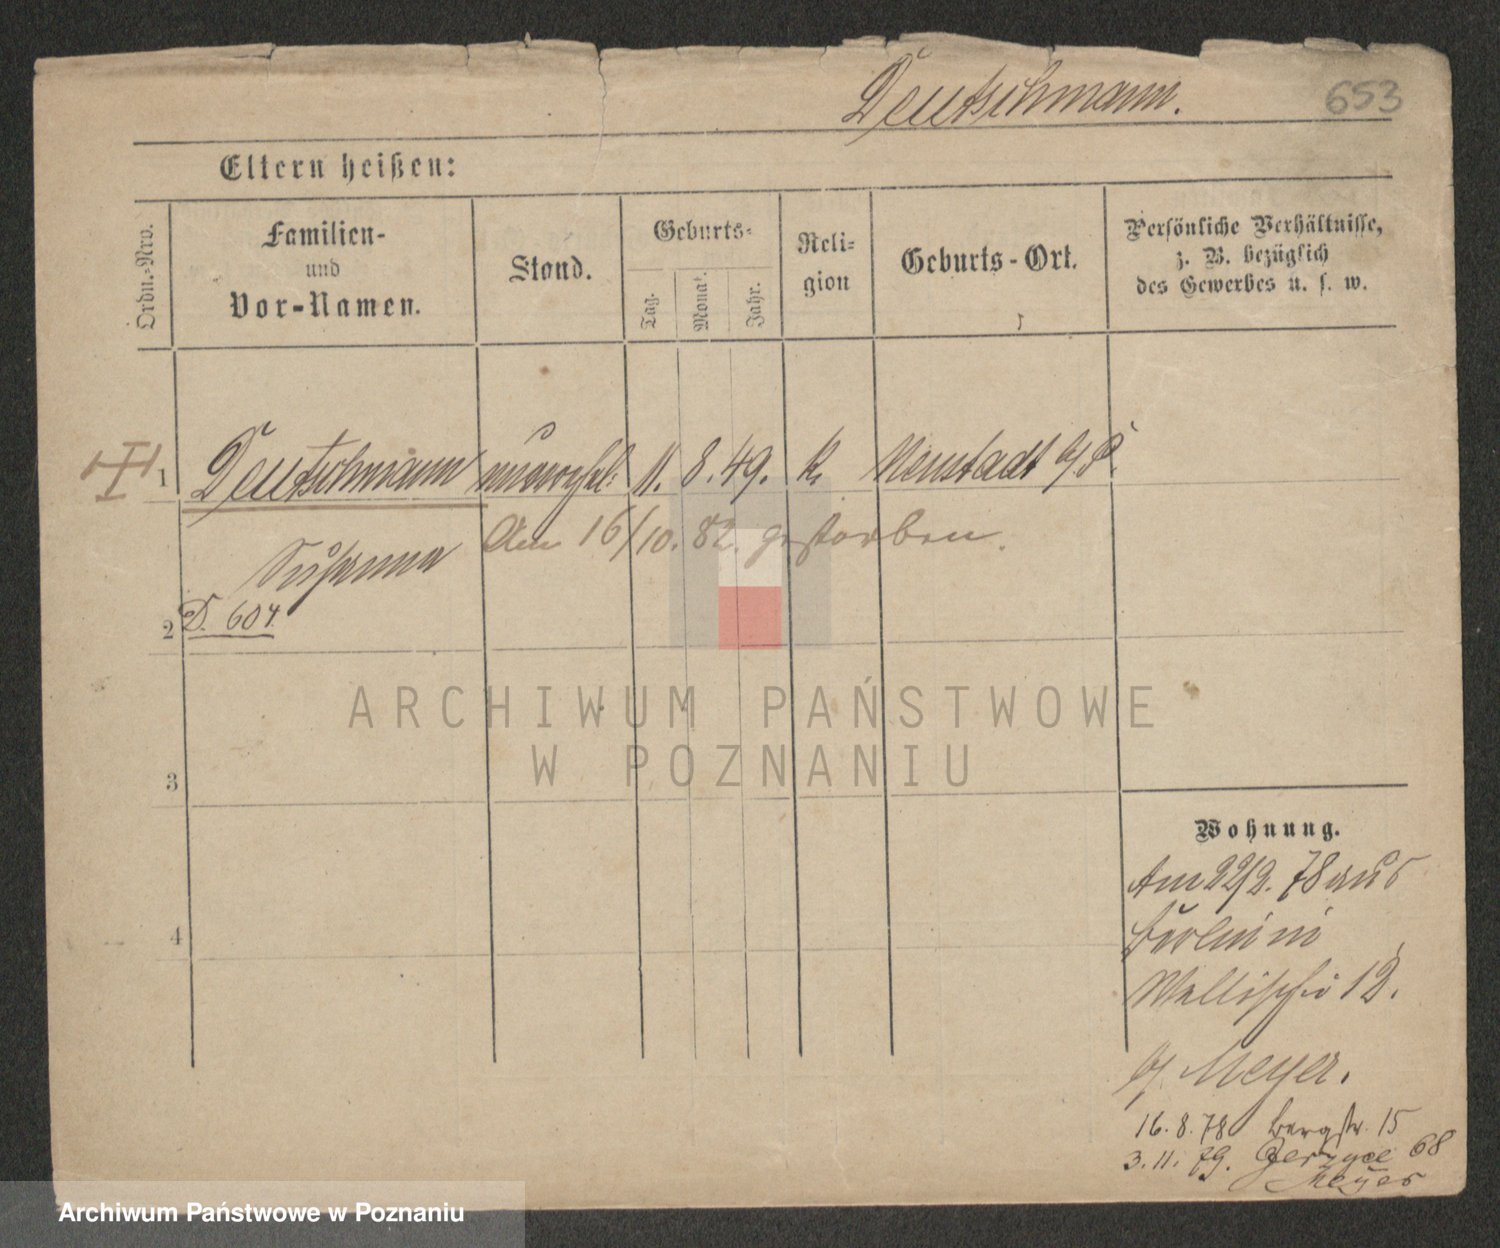 Deutschmann.
653
Eltern heißen:
Ordn.-Nro.
Familien-
und
Vor-Namen.
Stand.
Geburts-
Tag.
Monat.
Jahr.
Reli-
gion
Geburts-Ort.
Persönliche Verhältnisse,
z. B. bezüglich
des Gewerbes u. s. w.
1 Deutschmann unverehl: 11. 8. 49. k. Neustadt b/P.
Am 16/10. 82. gestorben.
Susanna
2 D. 604.
ARCHIWUM PAŃSTWOWE
W POZNANIU
3
Wohnung.
Am 22/2. 78 aus
Berlin in
4
Wallischei 12.
b/ Meyer.
16. 8. 78 Bergstr. 15
3. 11. 79. Jerzyce 68
Meyer
Archiwum Państwowe w Poznaniu